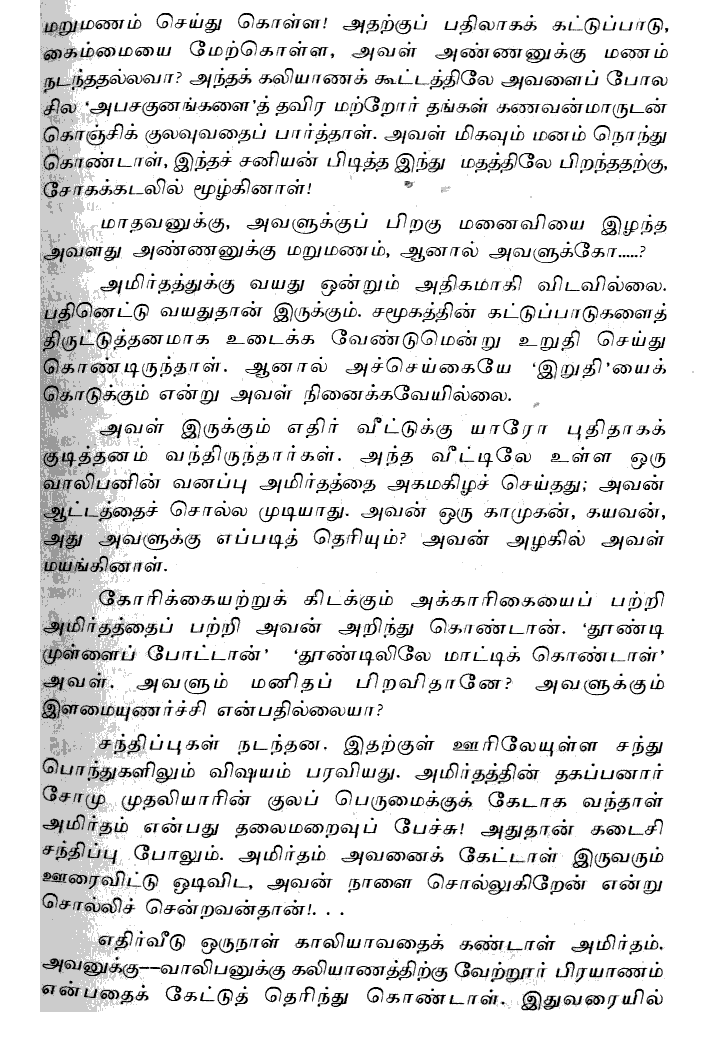 மறுமணம் செய்து கொள்ள! அதற்குப் பதிலாகக் கட்டுப்பாடு,
கைம்மையை மேற்கொள்ள, அவள் அண்ணனுக்கு மணம்
நடந்ததல்லவா? அந்தக் கலியாணக் கூட்டத்திலே அவளைப் போல
சில ‘அபசகுனங்களை’த் தவிர மற்றோர் தங்கள் கணவன்மாருடன்
கொஞ்சிக் குலவுவதைப் பார்த்தாள். அவள் மிகவும் மனம் நொந்து
கொண்டாள், இந்தச் சனியன் பிடித்த இந்து மதத்திலே பிறந்ததற்கு,
சோகக்கடலில் மூழ்கினாள்!
மாதவனுக்கு, அவளுக்குப் பிறகு மனைவியை இழந்த
அவளது அண்ணனுக்கு மறுமணம், ஆனால் அவளுக்கோ.....?
அமிர்தத்துக்கு வயது ஒன்றும் அதிகமாகி விடவில்லை.
பதினெட்டு வயதுதான் இருக்கும். சமூகத்தின் கட்டுப்பாடுகளைத்
திருட்டுத்தனமாக உடைக்க வேண்டுமென்று உறுதி செய்து
கொண்டிருந்தாள். ஆனால் அச்செய்கையே ‘இறுதி’யைக்
கொடுக்கும் என்று அவள் நினைக்கவேயில்லை.
அவள் இருக்கும் எதிர் வீட்டுக்கு யாரோ புதிதாகக்
குடித்தனம் வந்திருந்தார்கள். அந்த வீட்டிலே உள்ள ஒரு
வாலிபனின் வனப்பு அமிர்தத்தை அகமகிழச் செய்தது; அவன்
ஆட்டத்தைச் சொல்ல முடியாது. அவன் ஒரு காமுகன், கயவன்,
அது அவளுக்கு எப்படித் தெரியும்? அவன் அழகில் அவள்
மயங்கினாள்.
கோரிக்கையற்றுக் கிடக்கும் அக்காரிகையைப் பற்றி
அமிர்தத்தைப் பற்றி அவன் அறிந்து கொண்டான். ‘தூண்டி
முள்ளைப் போட்டான்’ ‘தூண்டிலிலே மாட்டிக் கொண்டாள்’
அவள். அவளும் மனிதப் பிறவிதானே? அவளுக்கும்
இளமையுணர்ச்சி என்பதில்லையா?
சந்திப்புகள் நடந்தன. இதற்குள் ஊரிலேயுள்ள சந்து
பொந்துகளிலும் விஷயம் பரவியது. அமிர்தத்தின் தகப்பனார்
சோமு முதலியாரின் குலப் பெருமைக்குக் கேடாக வந்தாள்
அமிர்தம் என்பது தலைமறைவுப் பேச்சு! அதுதான் கடைசி
சந்திப்பு போலும். அமிர்தம் அவனைக் கேட்டாள் இருவரும்
ஊரைவிட்டு ஒடிவிட, அவன் நாளை சொல்லுகிறேன் என்று
சொல்லிச் சென்றவன்தான்!. . .
எதிர்வீடு ஒருநாள் காலியாவதைக் கண்டாள் அமிர்தம்.
அவனுக்கு—வாலிபனுக்கு கலியாணத்திற்கு வேற்றூர் பிரயாணம்
என்பதைக் கேட்டுத் தெரிந்து கொண்டாள். இதுவரையில்